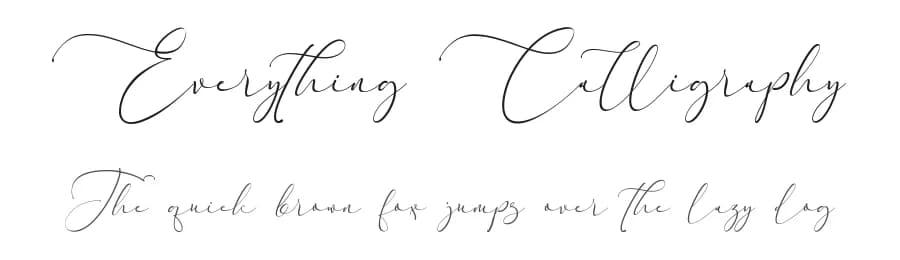 Everything Calligraphy
The quick brown fox jumps over the lazy dog